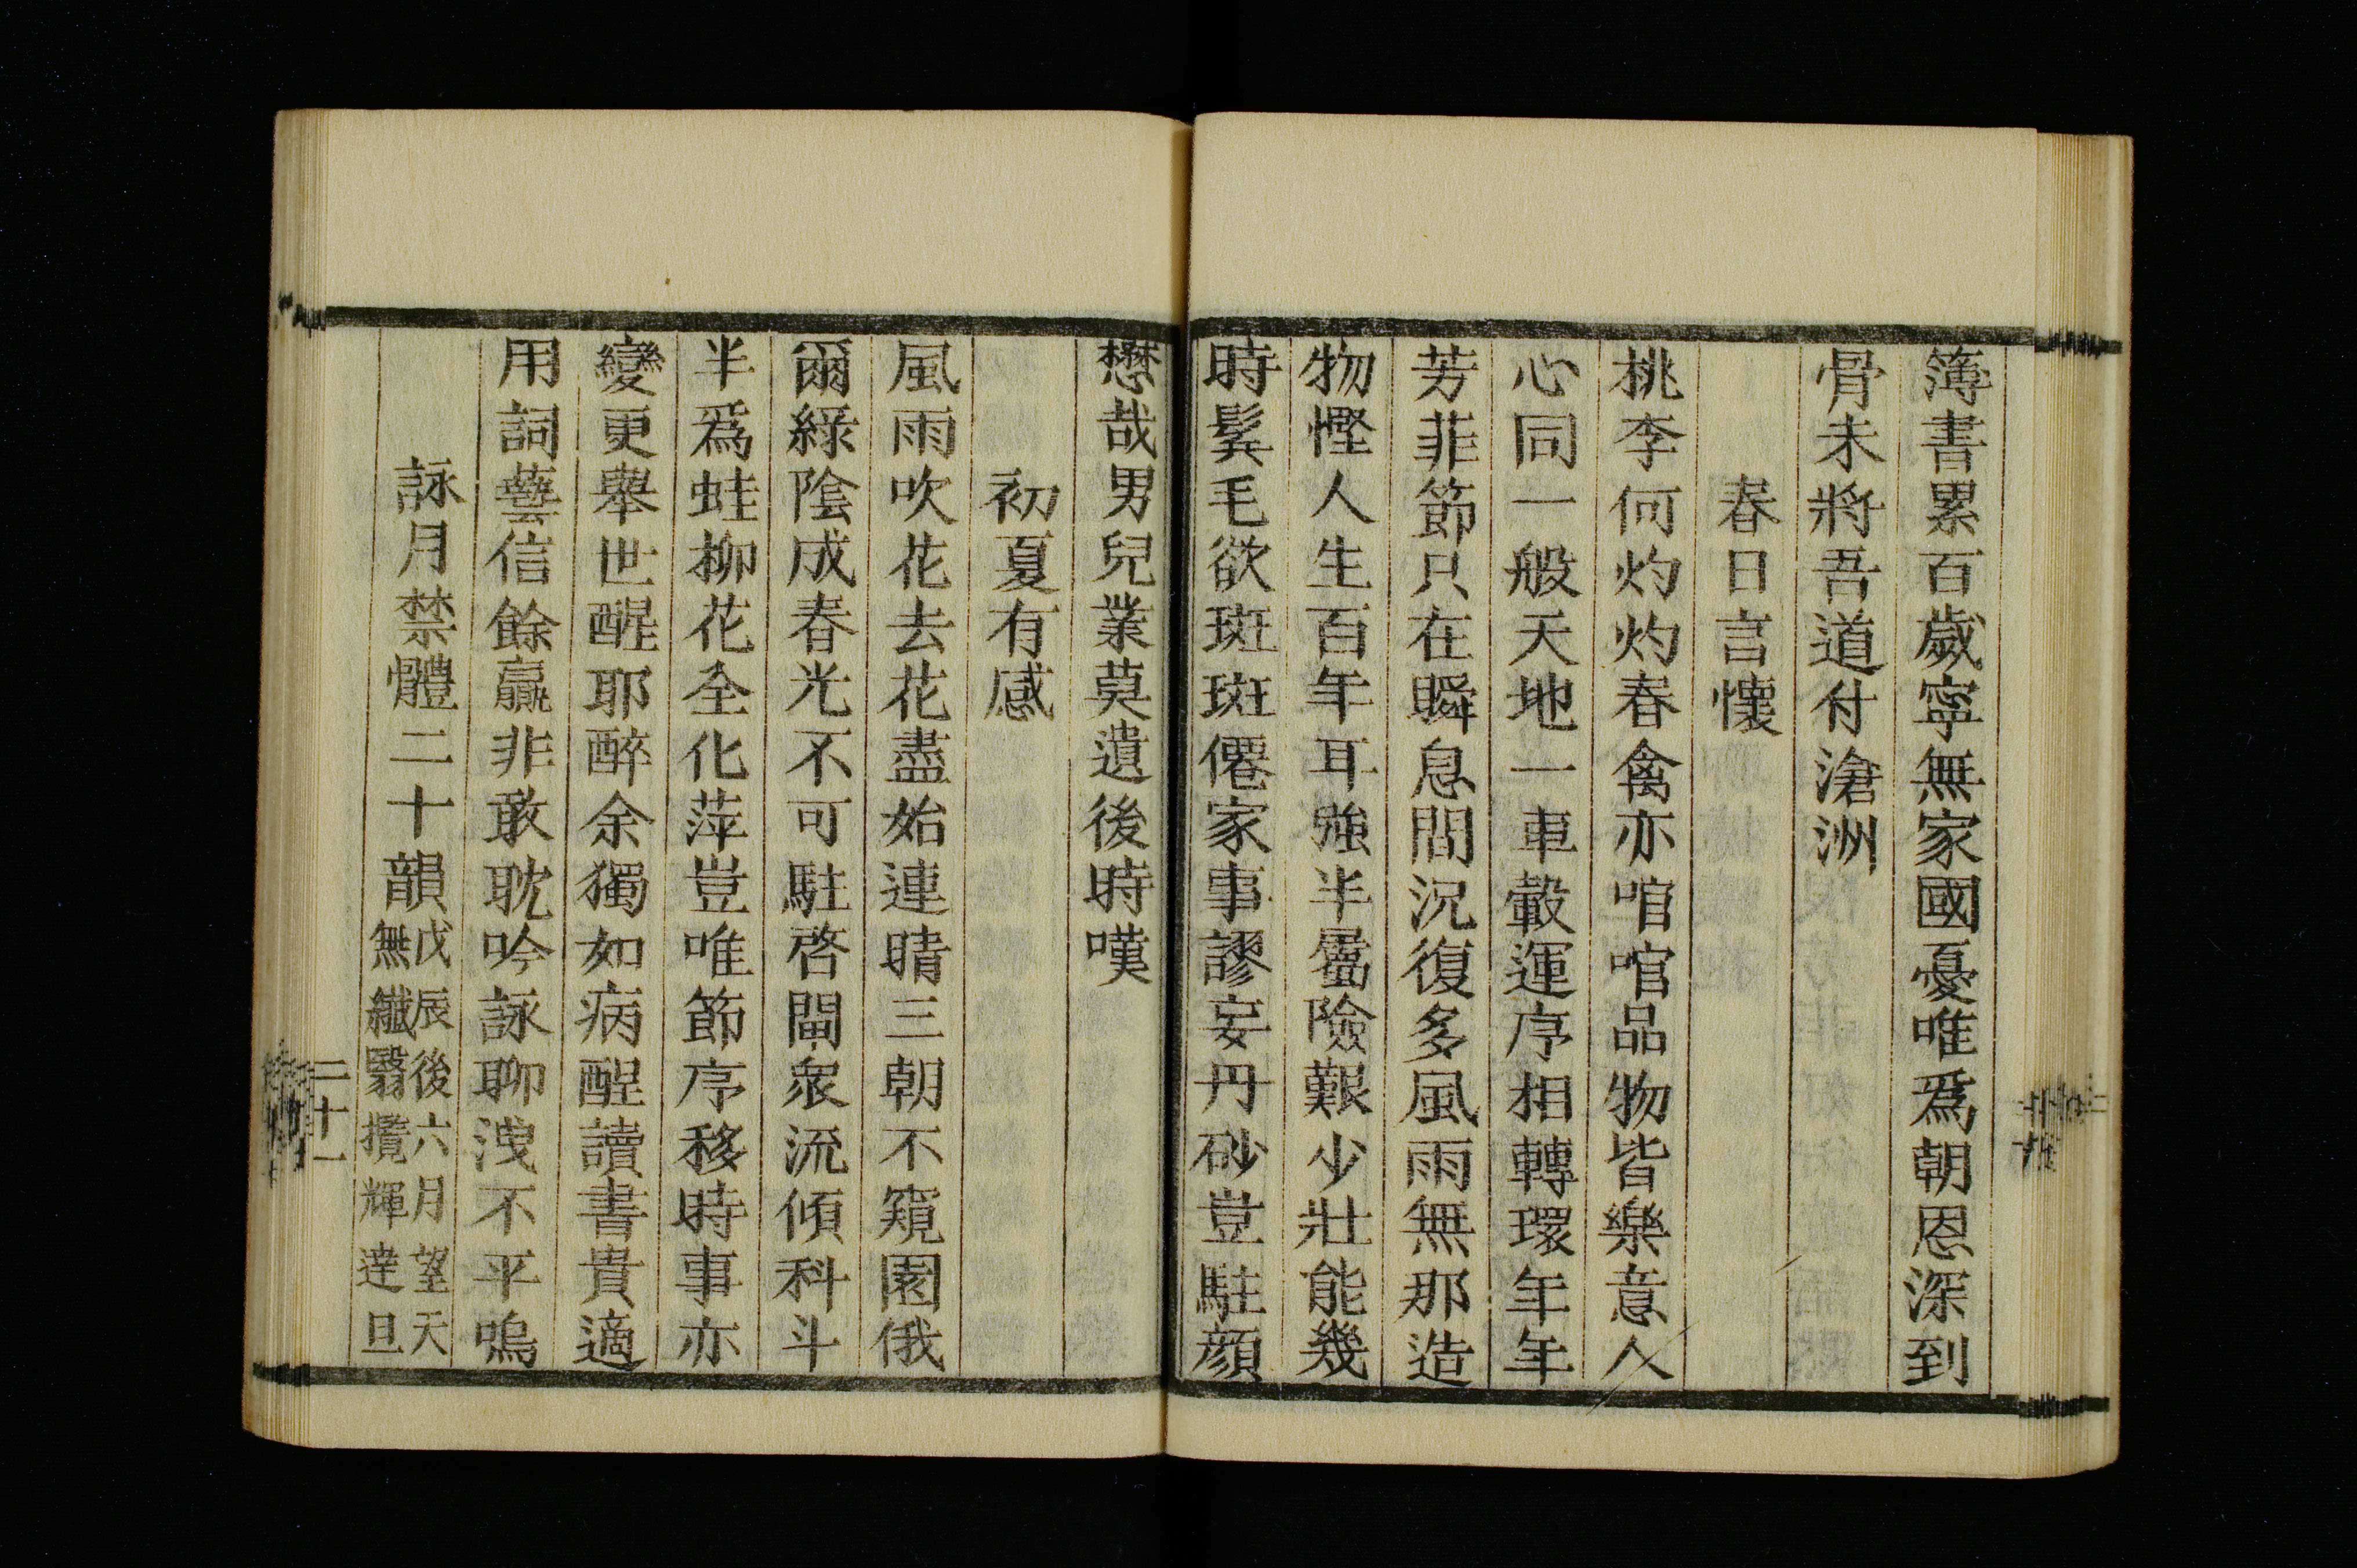 簿書累百歲寧無家國憂唯爲朝恩深到
骨未將吾道付滄洲
春日言懷
桃李何灼灼春禽亦喧喧品物皆樂意人
心同一般天地一車轂運序相轉環年年
芳菲節只在瞬息間況復多風雨無那造
物慳人生百年耳強半罹險艱少壯能幾
時鬂毛欲斑斑僊家事謬妄丹砂豈駐顏
懋哉男兒業莫遺後時嘆
初夏有感
風雨吹花去花盡始連晴三朝不窺園俄
爾綠陰成春光不可駐啓閉衆流傾科斗
半爲蛙柳花全化萍豈唯節序移時事亦
變更舉世醒耶醉余獨如病酲讀書貴適
用詞藝信餘贏非敢耽吟詠聊洩不平鳴
詠月禁體二十韻
戊辰後六月望天
無纖翳攬輝達旦
二十一